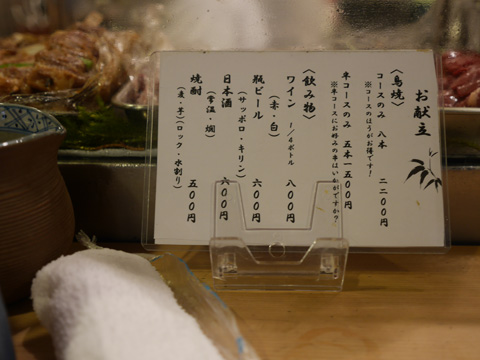 お献立
〈鳥焼〉
コースのみ 八本 二二〇〇円
※コースのほうがお得です!
半コースのみ 五本 一五〇〇円
※半コースにお好みの串はいかがですか?
〈飲み物〉
ワイン 1/4ボトル 八〇〇円
(赤・白)
瓶ビール 六〇〇円
(サッポロ・キリン)
日本酒 六〇〇円
(常温・燗)
焼酎 五〇〇円
(麦・芋)(ロック・水割り)